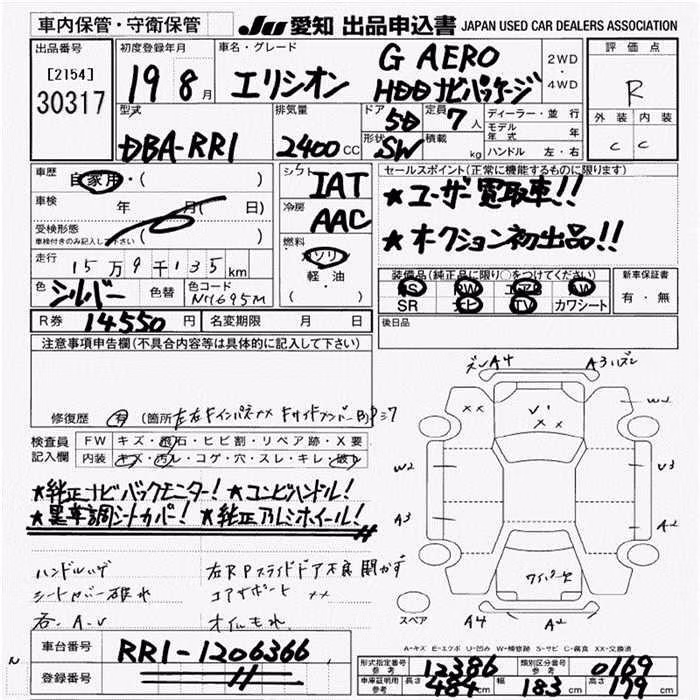 車内保管・守衛保管
JU 愛知 出品申込書 JAPAN USED CAR DEALERS ASSOCIATION
出品番号
[2154]
30317
初度登録年月
19 8月
車名・グレード
エリシオン
G AERO
HDDナビパッケージ
2WD
・
4WD
評価点
R
外装 内装
C C
型式
DBA-RR1
排気量
2400 CC
ドア
5D
形状
SW
定員
7人
積載
kg
ディーラー・並行
モデル年式 年
ハンドル 左・右
車歴
自家用・( )
車検
年 月( 日)
受検形態
車検付きのみ記入して下さい ( )
走行
15万9千135km
色
シルバー
色替
色コード
NH695M
シフト
IAT
冷房
AAC
燃料
ガソリン
軽・油
( )
セールスポイント(正常に機能するものに限ります)
★ユーザー買取車!!
★オークション初出品!!
装備品(純正品に限り○をつけてください)
PS PW エアB AW
SR ナビ TV カワシート
新車保証書
有・無
R券 14550円
名変期限 月 日
後日品
注意事項申告欄(不具合内容等は具体的に記入して下さい)
修復歴 有 (箇所
検査員記入欄
FW キズ・飛石・ヒビ割・リペア跡・X要
内装 キズ・汚レ・コゲ・穴・スレ・キレ・破レ
★純正ナビバックモニター! ★コンビハンドル!
★黒革調シートカバー! ★純正アルミホイール!
ハンドルハゲ
左Rスライドドア不良 開かず
シートカバー破れ
エアサポート ××
オイルもれ
ズレ A4 A3 ズレ
×× V' ××
W2
W2 V3
A3 A2
ワイパーナシ
A4 A2
スペア
A-キズ E-エクボ U-凹み W-補修跡 S-サビ C-腐食 XX-交換済
車台番号 RR1-1206366
登録番号
形式指定番号 参考 12386
類別区分番号 参考 0169
車庫証明用 参考 長さ 484cm 幅 183cm 高さ 179cm